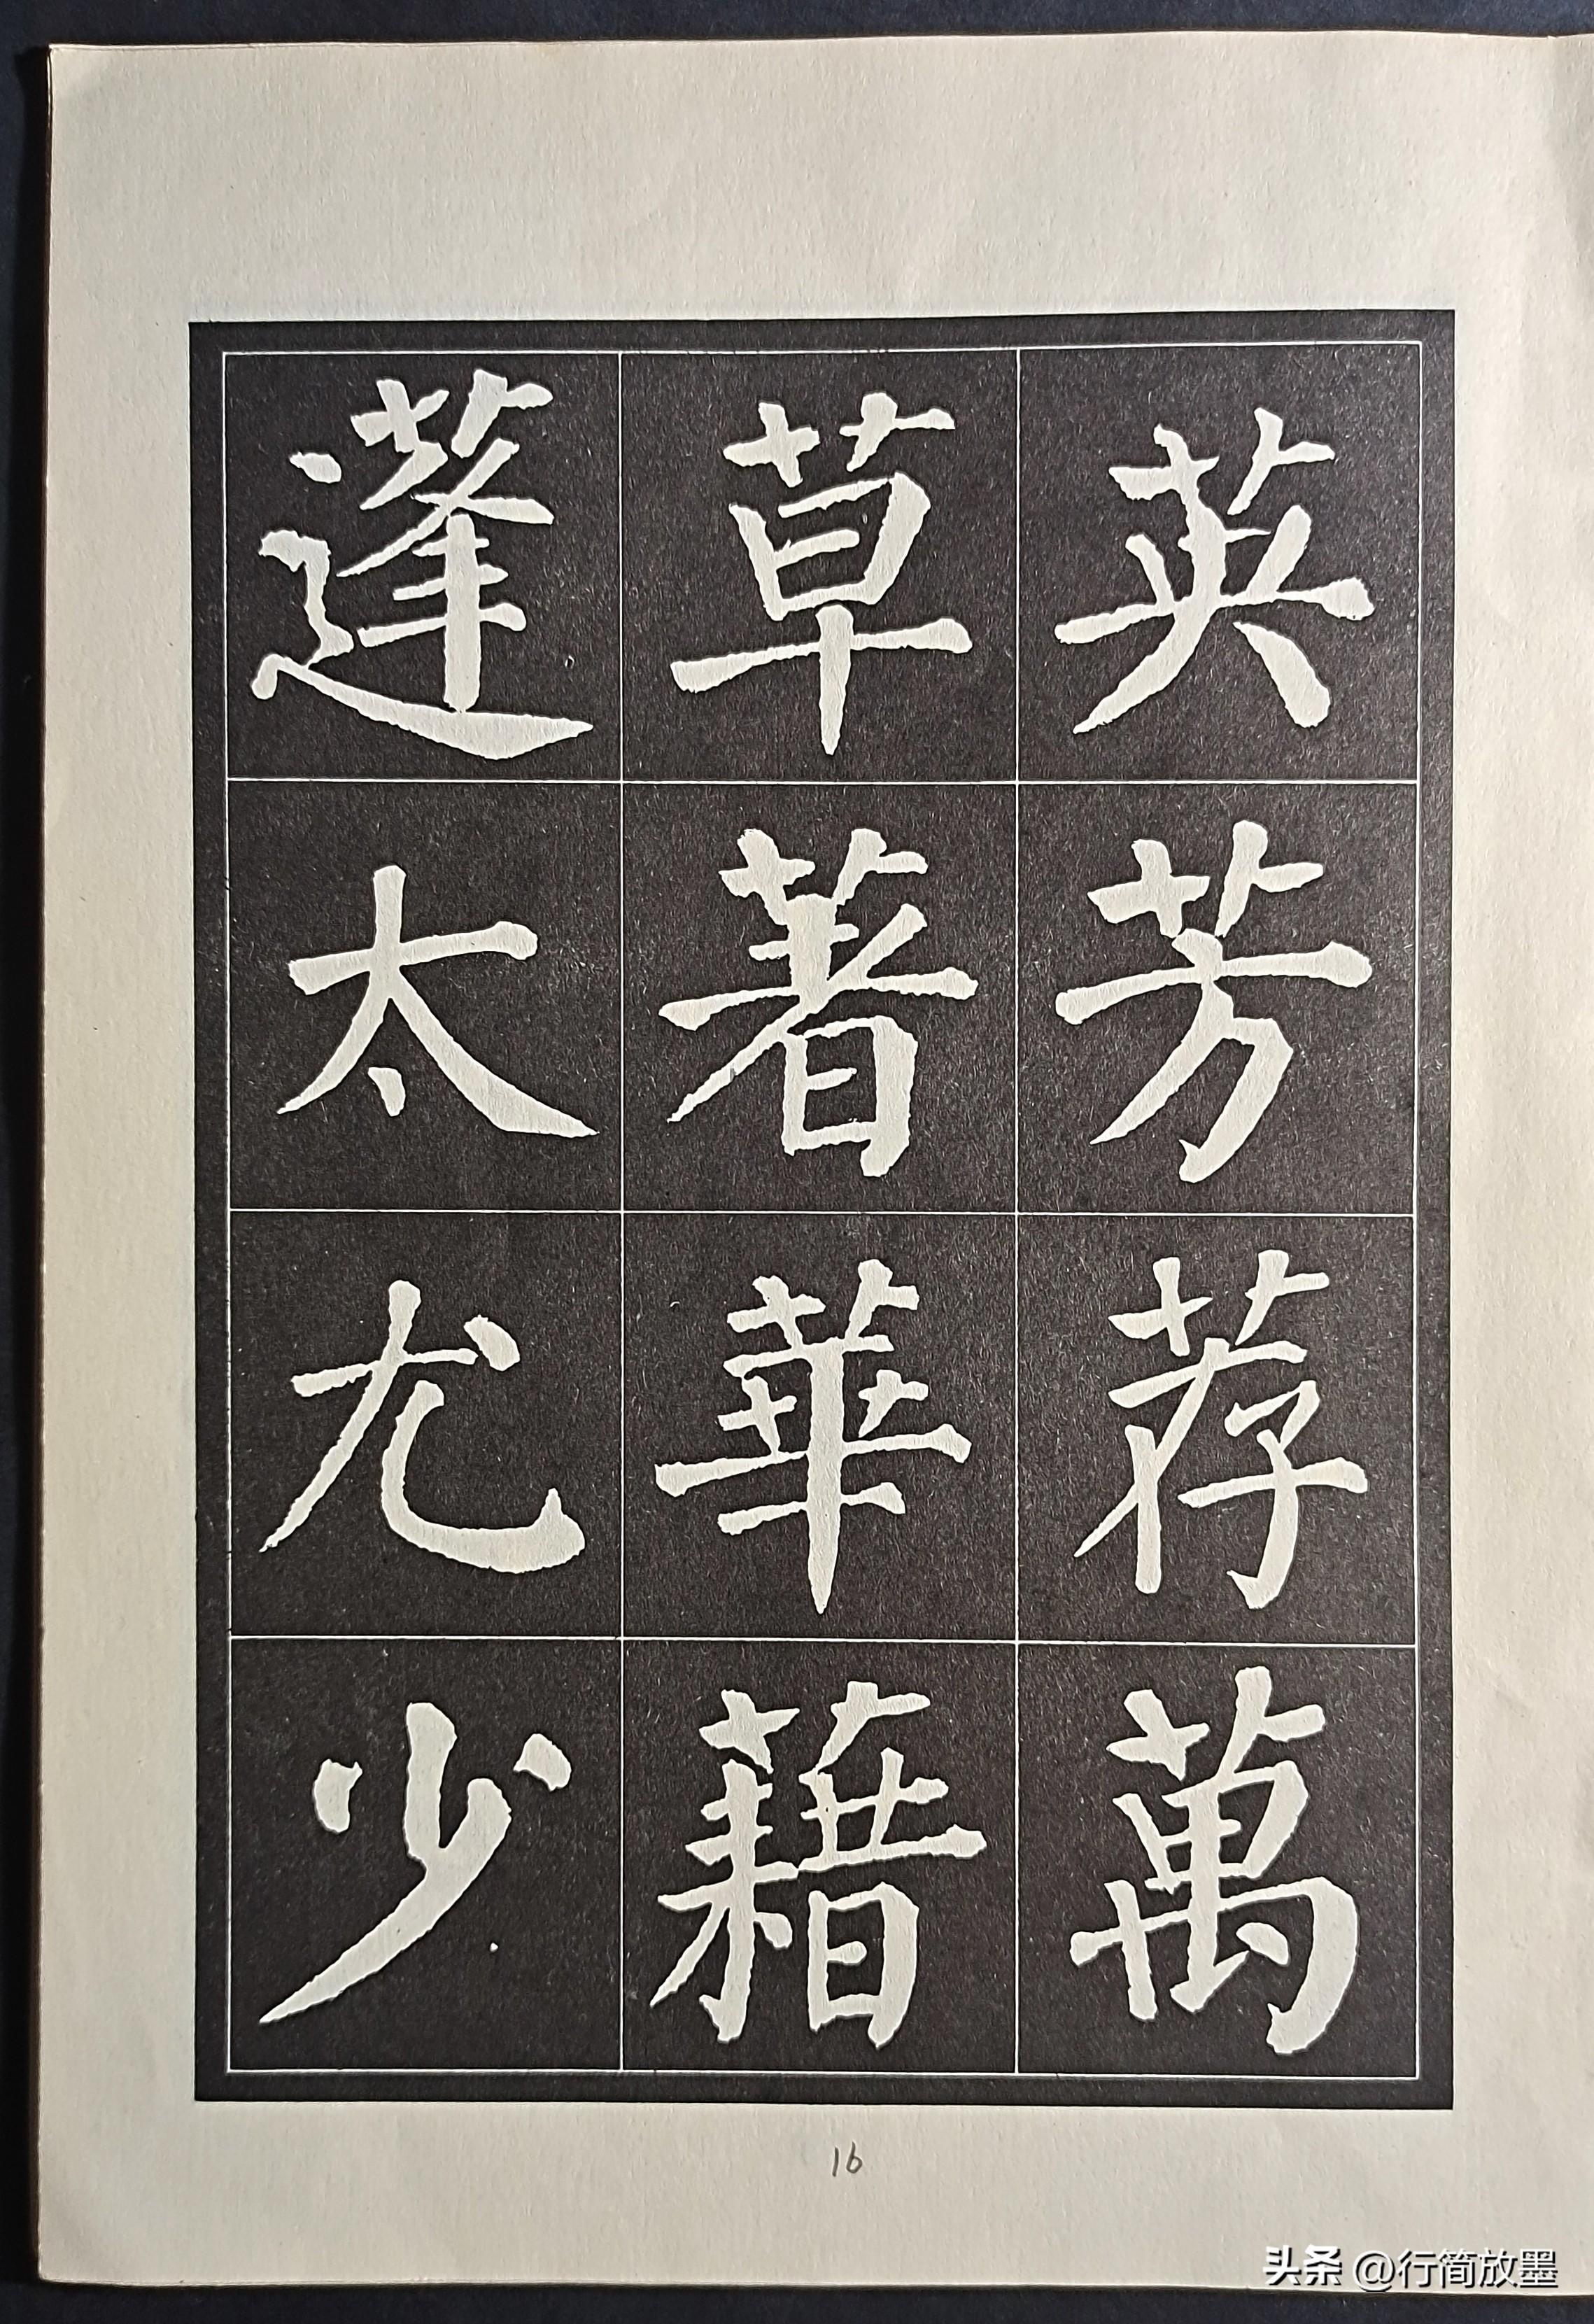 英芳荐萬
草著華藉
蓬太尤少
16
头条 @行简放墨